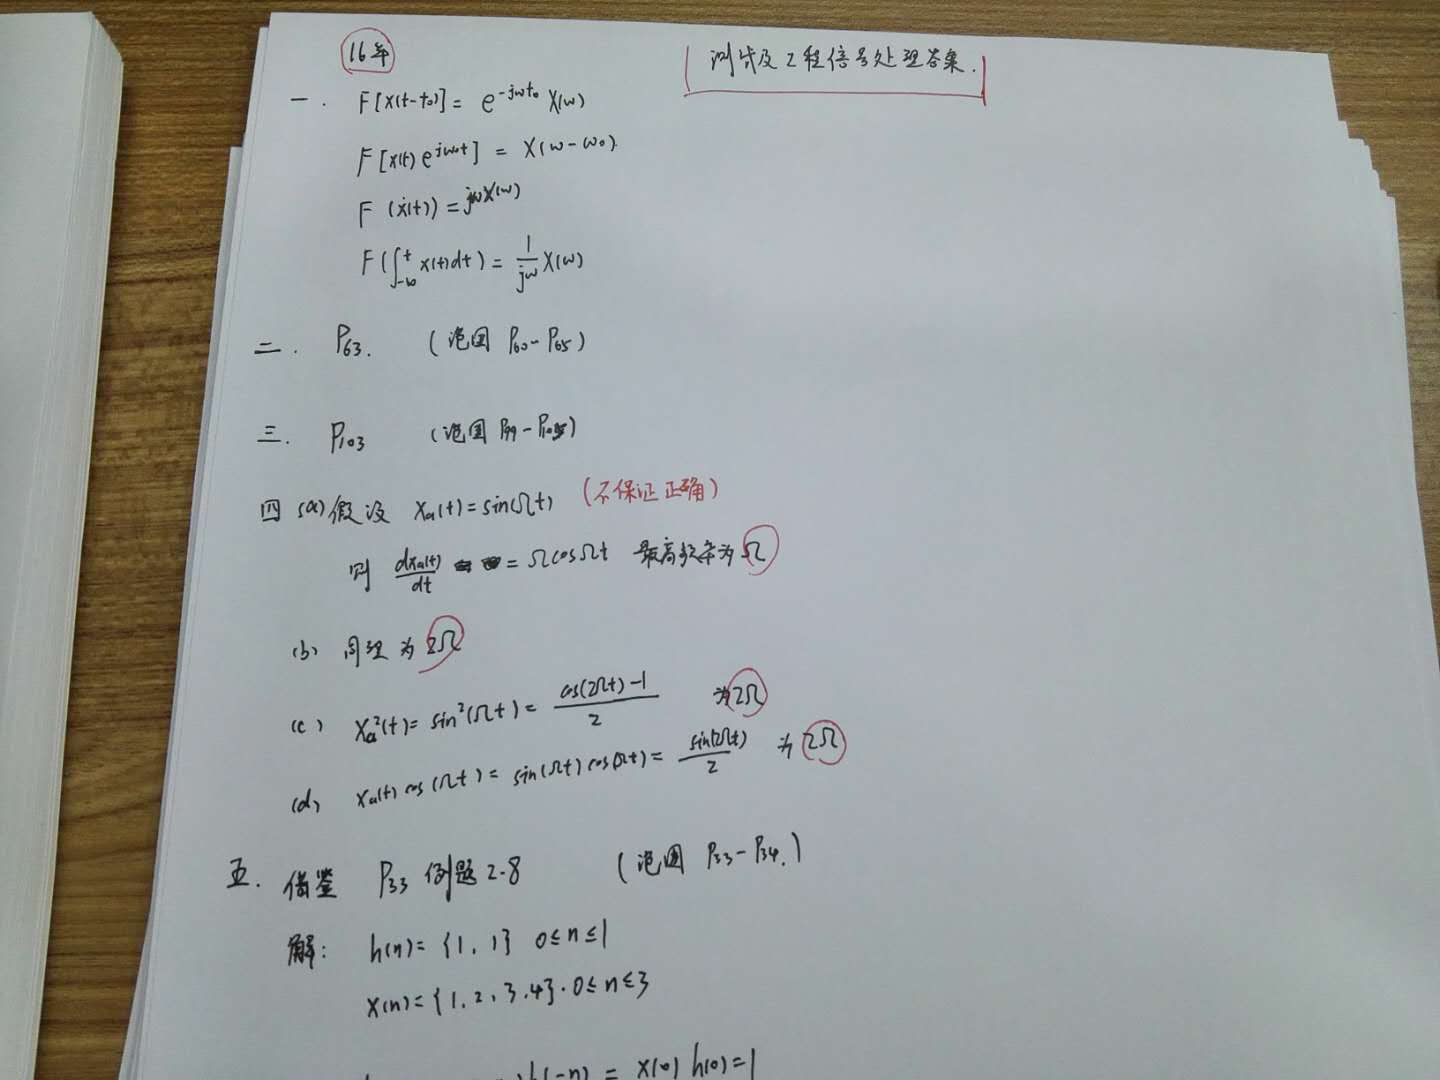 16年
测试及工程信号处理答案.
一. F[x(t-t₀)] = e^{-jωt₀} X(ω)
F[x(t) e^{jω₀t}] = X(ω-ω₀).
F(ẋ(t)) = jωX(ω)
F(∫_{-∞}^{t} x(t)dt) = \frac{1}{jω} X(ω)
二. P63. (范围 P60-P65)
三. P103 (范围 P99-P105)
四 (a) 假设 Xa(t) = sin(Ωt) (不保证正确)
则 \frac{dXa(t)}{dt} = ΩcosΩt 最高频率为Ω
(b) 同理为 2Ω
(c) Xa²(t) = sin²(Ωt) = \frac{cos(2Ωt)-1}{2} 为2Ω
(d) Xa(t) cos(Ωt) = sin(Ωt) cos(Ωt) = \frac{sin(2Ωt)}{2} 为 2Ω
五. 借鉴 P33 例题 2-8 (范围 P33-P34.)
解: h(n) = {1, 1} 0≤n≤1
X(n) = {1, 2, 3, 4}. 0≤n≤3
h(-n) = X(0) h(0) = 1